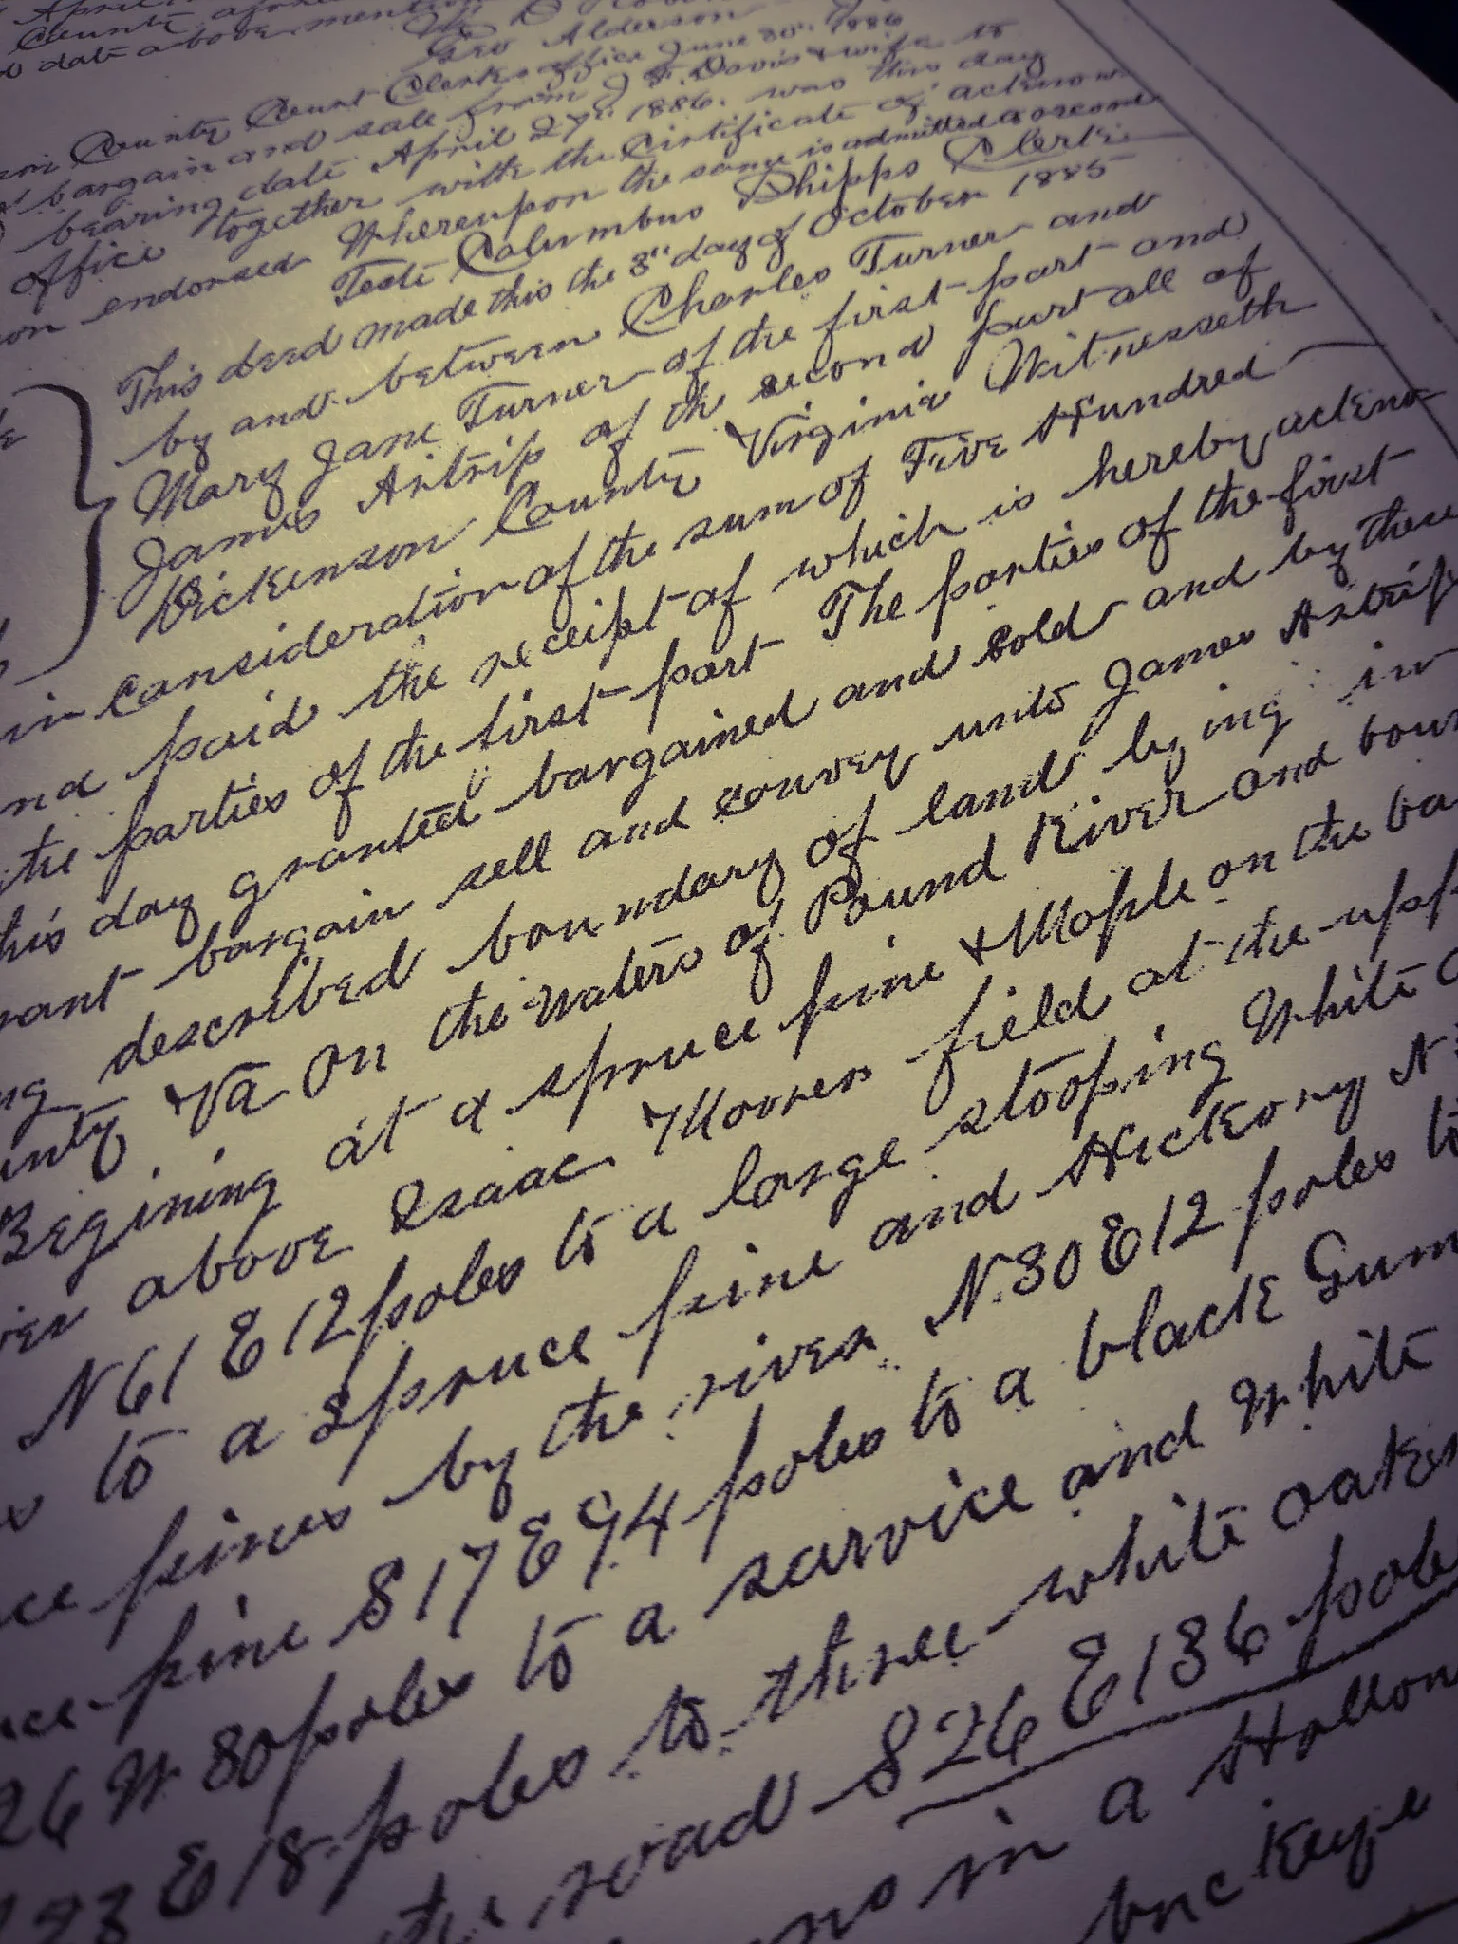 County
date above mention
Geo Alderson
County Court Clerks office June 30th 1886
bargain and sale from J F. Davis & wife to
bearing date April 27th 1886. was this day
office together with the Certificate of acknow
on endorsed Whereupon the same is admitted to record
Teste Columbus Phipps Clerk
This deed made this the 3rd day of October 1885
by and between Charles Turner and
Mary Jane Turner of the first part and
James Artrip of the second part all of
Dickenson County Virginia Witnesseth
in consideration of the sum of Five Hundred
nd paid the receipt of which is hereby acknow
the parties of the first part The parties of the first
his day granted bargained and sold and by these
rant bargain sell and convey unto James Artrip
ng described boundary of land lying in
unty Va on the waters of Pound River and boun
Begining at a spruce pine & Maple on the ba
ver above Isaac Moores field at the upp
N 61 E 12 poles to a large stooping White
s to a spruce pine and Hickory N
ce pines by the river N. 30 E 12 poles to
uce pine S 17 E 94 poles to a black Gum
26 W 80 poles to a sarvice and White
E 18 poles to three white oakes
the road S 26 E 136 pole
in a Hollow
buckeye